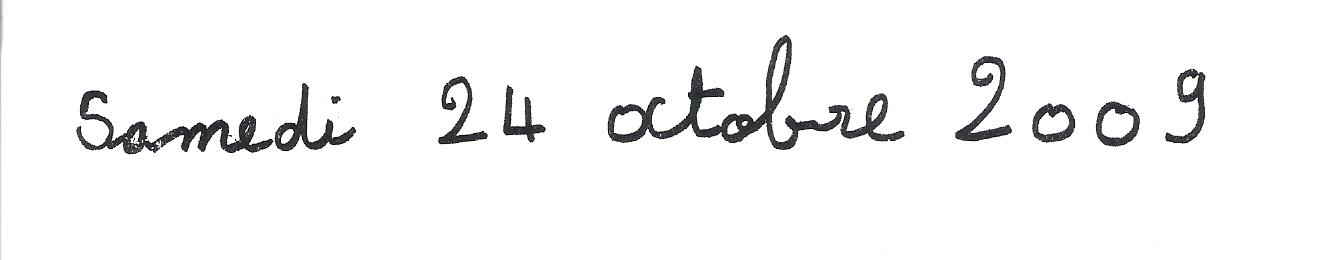 Samedi 24 octobre 2009